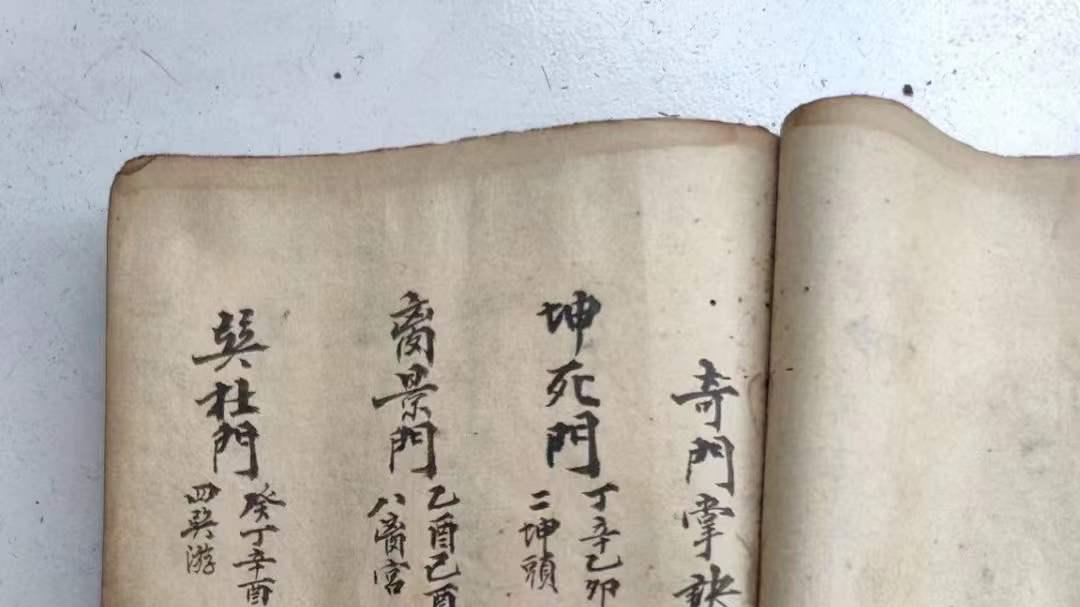 奇門掌訣
坤死門
丁辛乙卯
二坤頭
离景門
乙酉己酉
八离宮
巽杜門
癸丁辛酉
四巽游